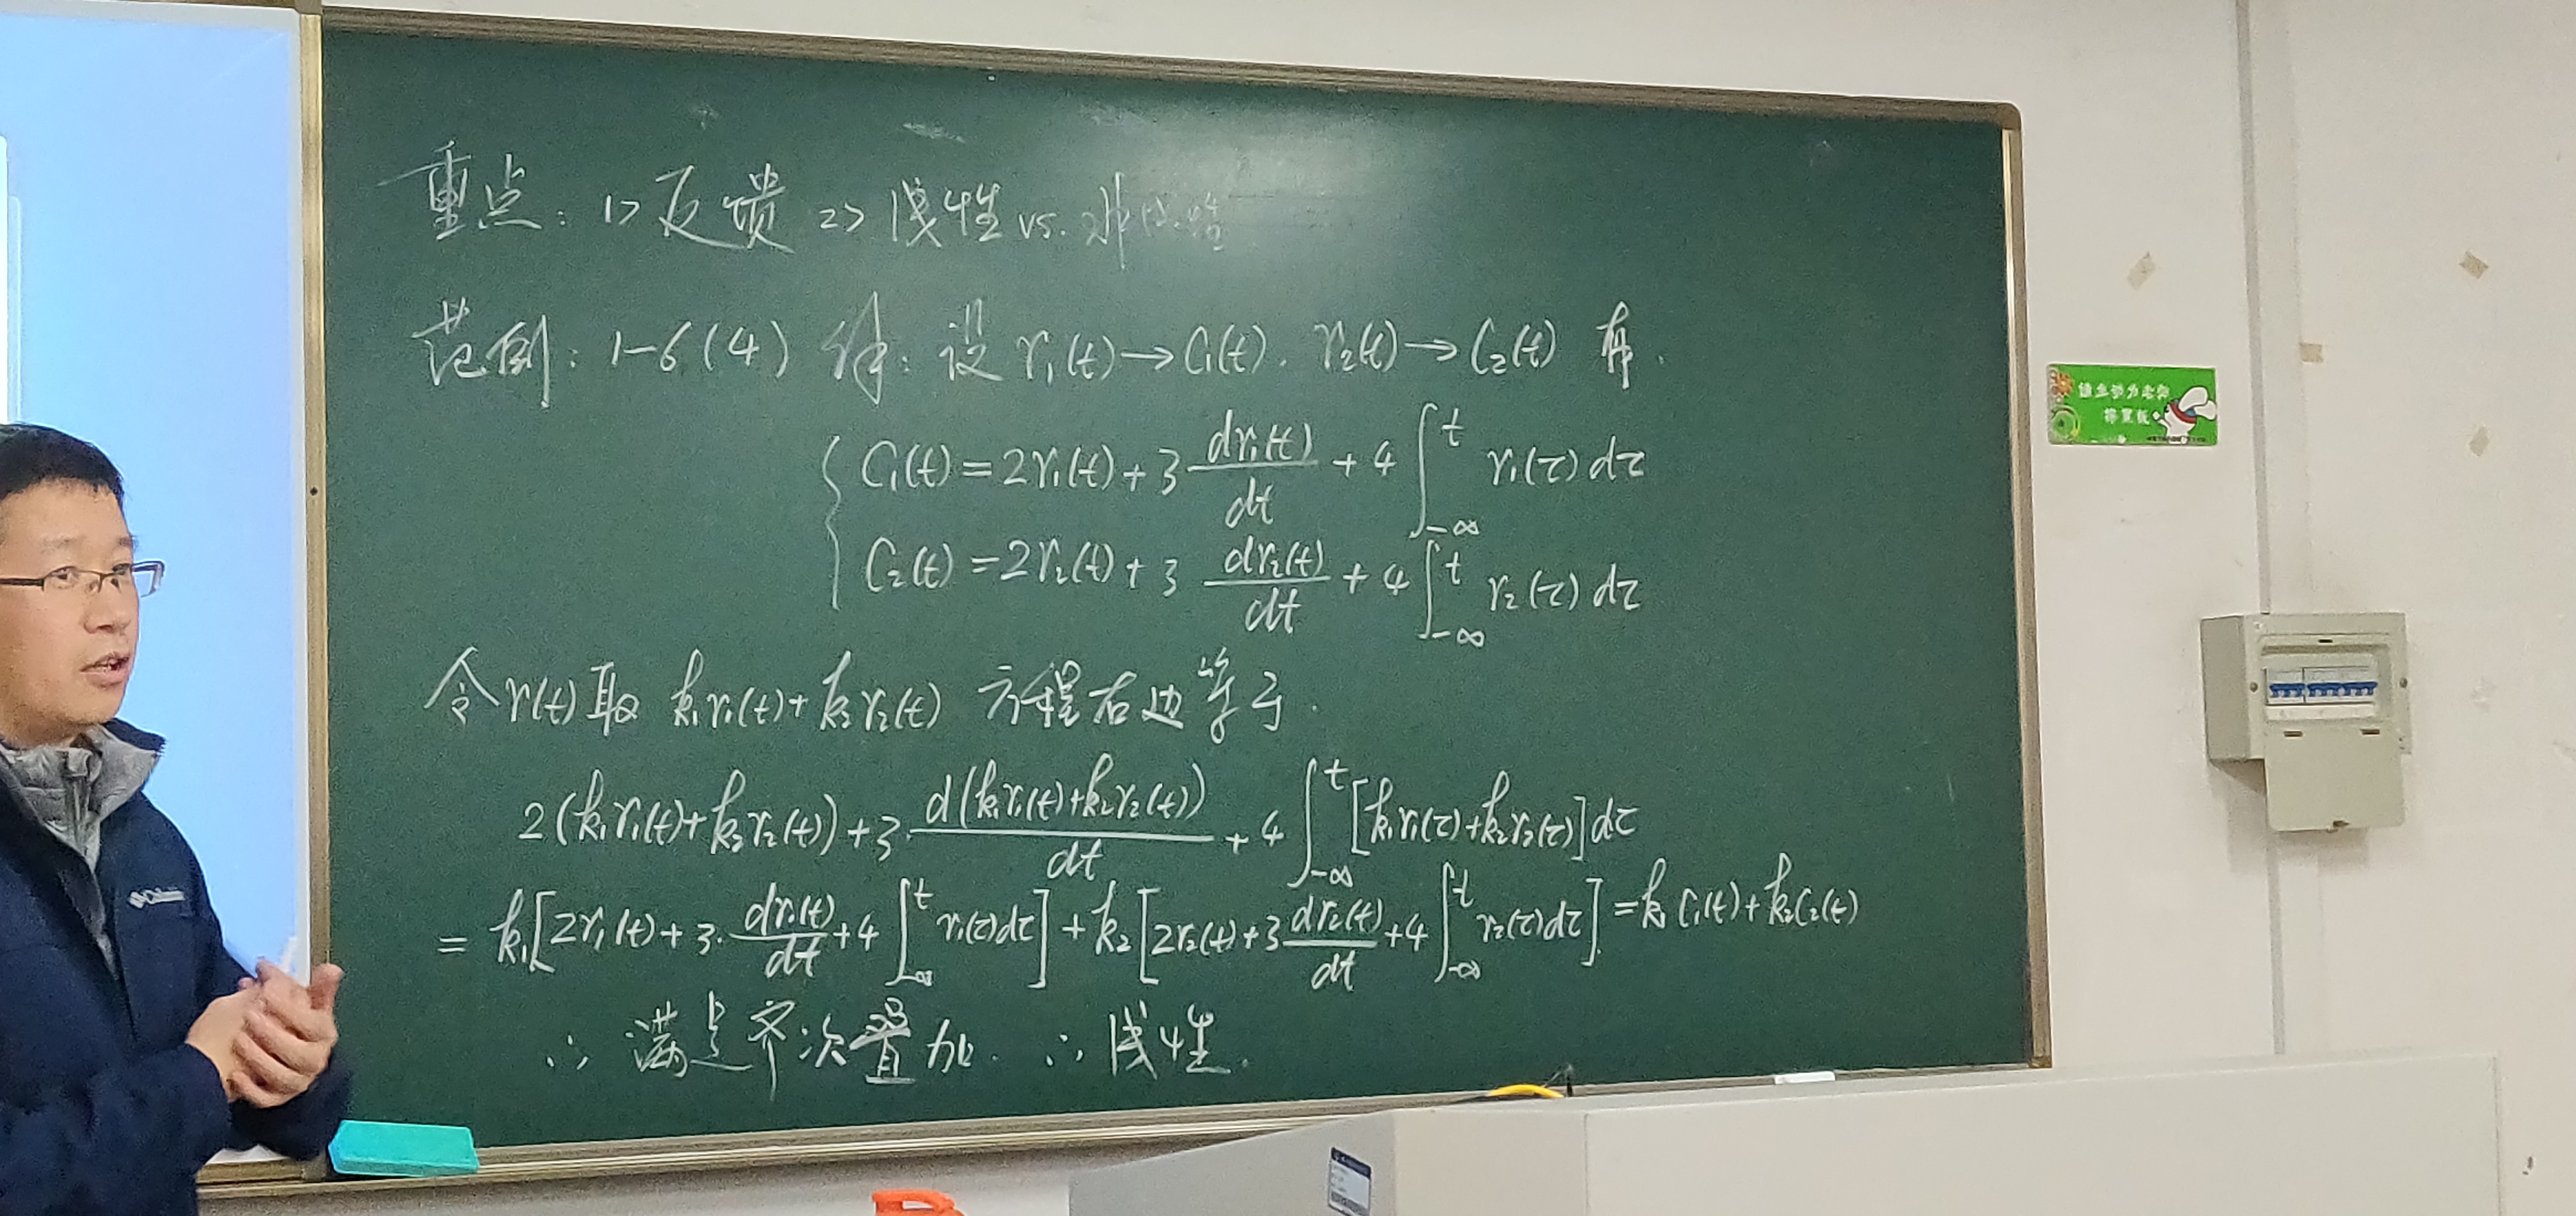 重点: 1> 反馈 2> 线性 vs. 非线性
范例: 1-6(4) 解: 设 r₁(t)→C₁(t). r₂(t)→C₂(t) 有.
C₁(t)=2r₁(t)+3 dr₁(t)/dt +4∫_{-∞}^{t} r₁(τ)dτ
C₂(t)=2r₂(t)+3 dr₂(t)/dt +4∫_{-∞}^{t} r₂(τ)dτ
令 r(t) 取 k₁r₁(t)+k₂r₂(t) 方程右边等于.
2(k₁r₁(t)+k₂r₂(t))+3·d(k₁r₁(t)+k₂r₂(t))/dt +4∫_{-∞}^{t}[k₁r₁(τ)+k₂r₂(τ)]dτ
= k₁[2r₁(t)+3·dr₁(t)/dt+4∫_{-∞}^{t} r₁(τ)dτ]+k₂[2r₂(t)+3 dr₂(t)/dt+4∫_{-∞}^{t} r₂(τ)dτ]=k₁C₁(t)+k₂C₂(t)
∴ 满足齐次叠加. ∴ 线性.
请主动为老师
擦黑板
Columbia